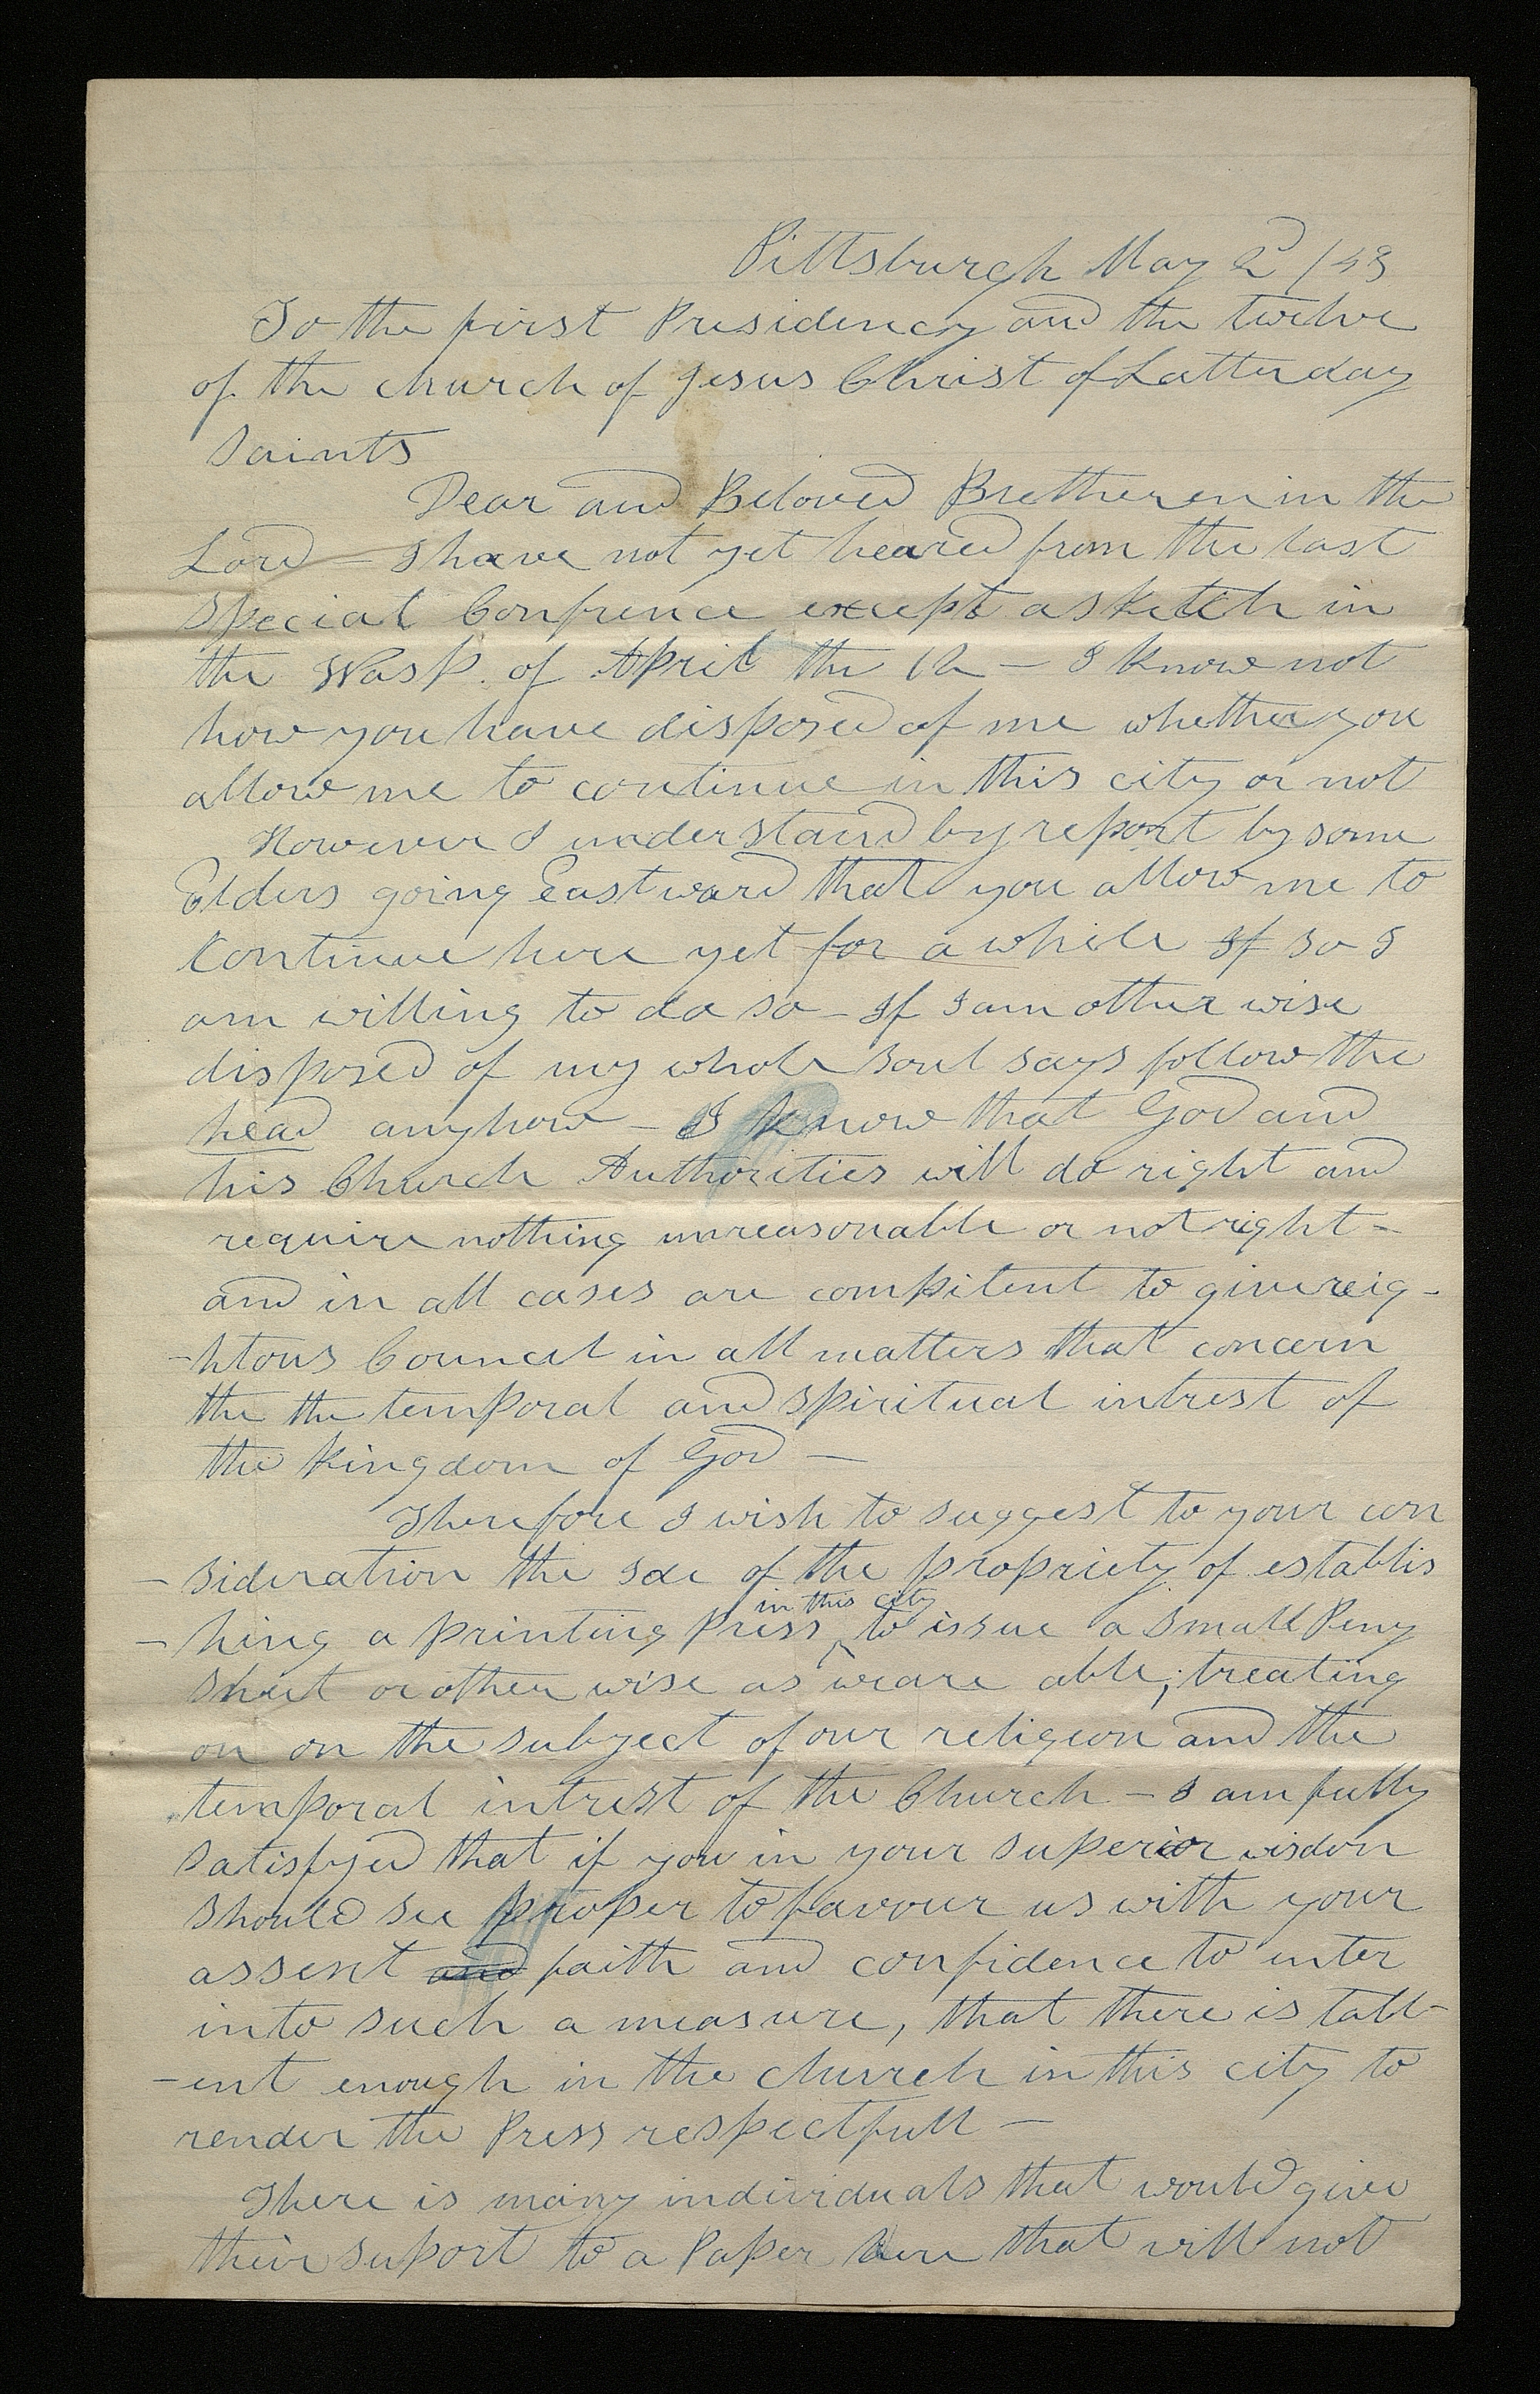 Pittsburgh May 2d /43
To the first Presidency and the twelve
of the church of Jesus Christ of Latterday
Saints
Dear and Beloved Bretheren in the
Lord – I have not yet heared from the last
Special Confrence except a sketch in
the Wasp. of April the 12 – I know not
how you have disposed of me whether you
allow me to continue in this city or not
However I understand by report by some
Elders going Eastward that you allow me to
Continue here yet for a while If so I
am willing to do so – If I am other wise
disposed of my whole soul says follow the
head anyhow – I know that God and
his Church Authorities will do right and
require nothing unreasonable or not right –
and in all cases are compitent to give reig-
-htous Councel in all matters that concern
the the temporal and spiritual intrest of
the Kingdom of God –
Therefore I wish to suggest to your con
-sideration the Ide of the propriety of establis
-hing a printing Press in this city to issue a small Peny
Sheet or other wise as we are able; treating
on on the subject of our religeon and the
temporal intrest of the Church – I am fully
satisfyed that if you in your superior wisdon
should see proper to favour us with your
assent and faith and confidence to enter
into such a measure, that there is tall-
-ent enough in the church in this city to
render the Press respectfull –
There is many individuals that would give
their suport to a Paper here that will not